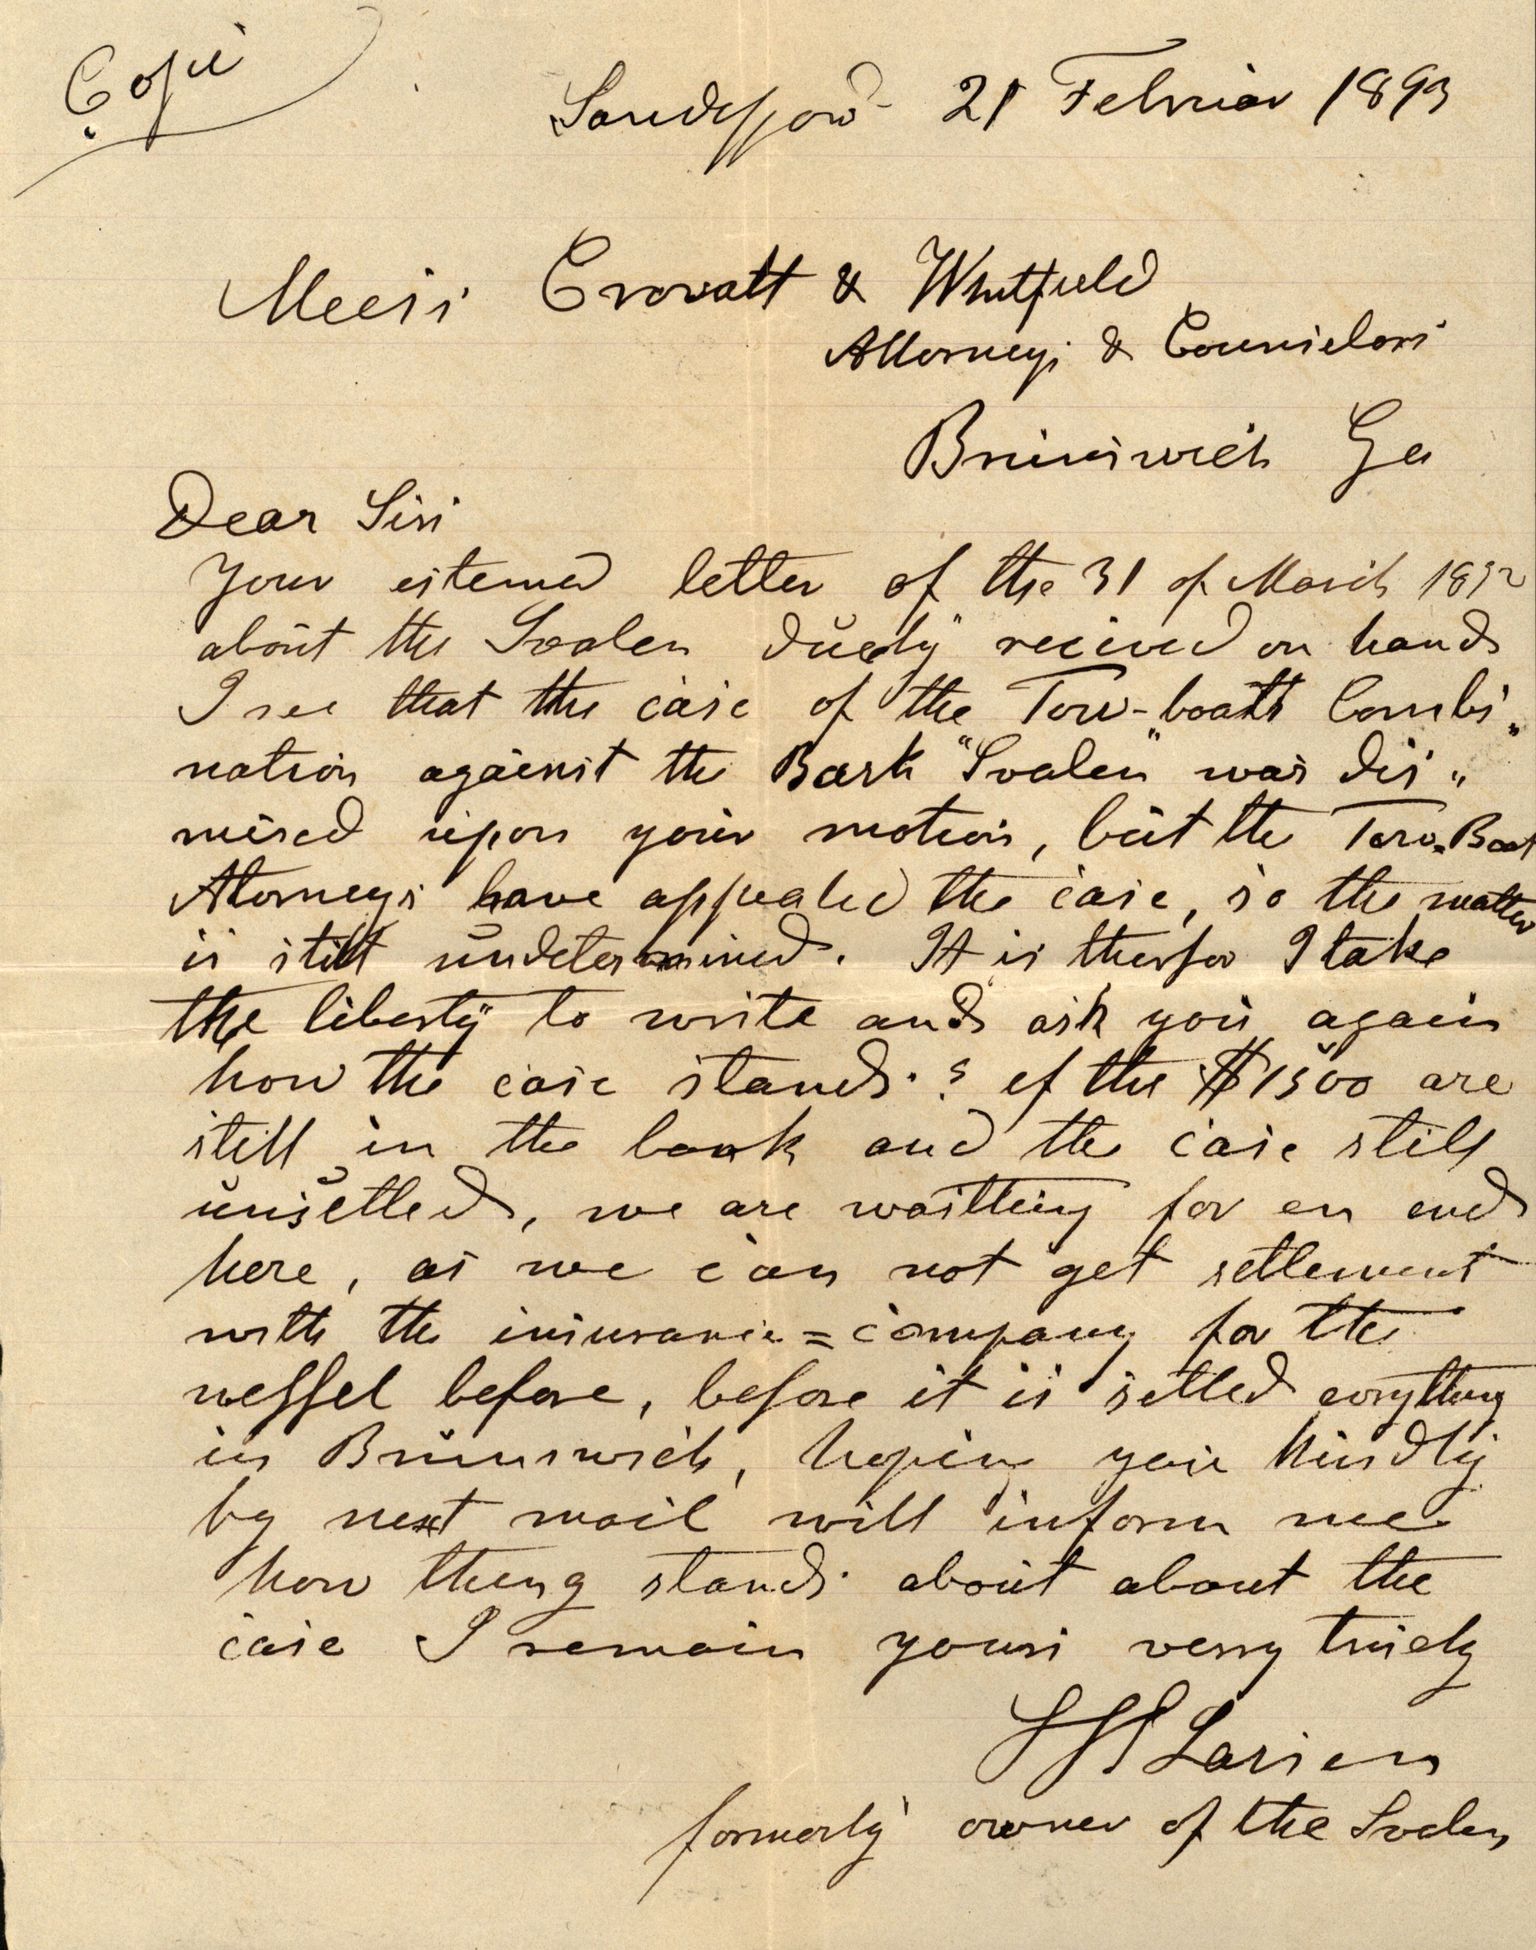 Copi
Sandefjord 21 Februar 1893
Meess Crovatt & Whitfield
Attorneys & Counselors
Brunswich Ga
Dear Sirs
Your estemed letter of the 31 of March 1892
about the Svalen duely recived on hand
I see that the case of the Tow-boats Combi„
nation against the Bark "Svalen" was dis„
mised upon your motion, but the Tow-Boat
Atorneys have appealed the case, so the matter
is still undetermined. It is therfor I take
the liberty to write and ask you again
how the case stands. ? if the $1500 are
still in the bank and the case still
unsetled, we are waitting for en end
here, as we can not get setlement
with the insurance=company for the
wessel before, before it is setled evrything
in Brunswich, hoping you kindly
by next mail will inform me
how thing stands about about the
case I remain yours verry truely
Larsen
formerly owner of the Svalen